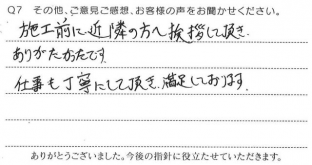 Q7 その他、ご意見ご感想、お客様の声をお聞かせください。
施工前に近隣の方へ挨拶して頂き
ありがたかたです
仕事も丁寧にして頂き 満足しております
ありがとうございました。今後の指針に役立たせていただきます。